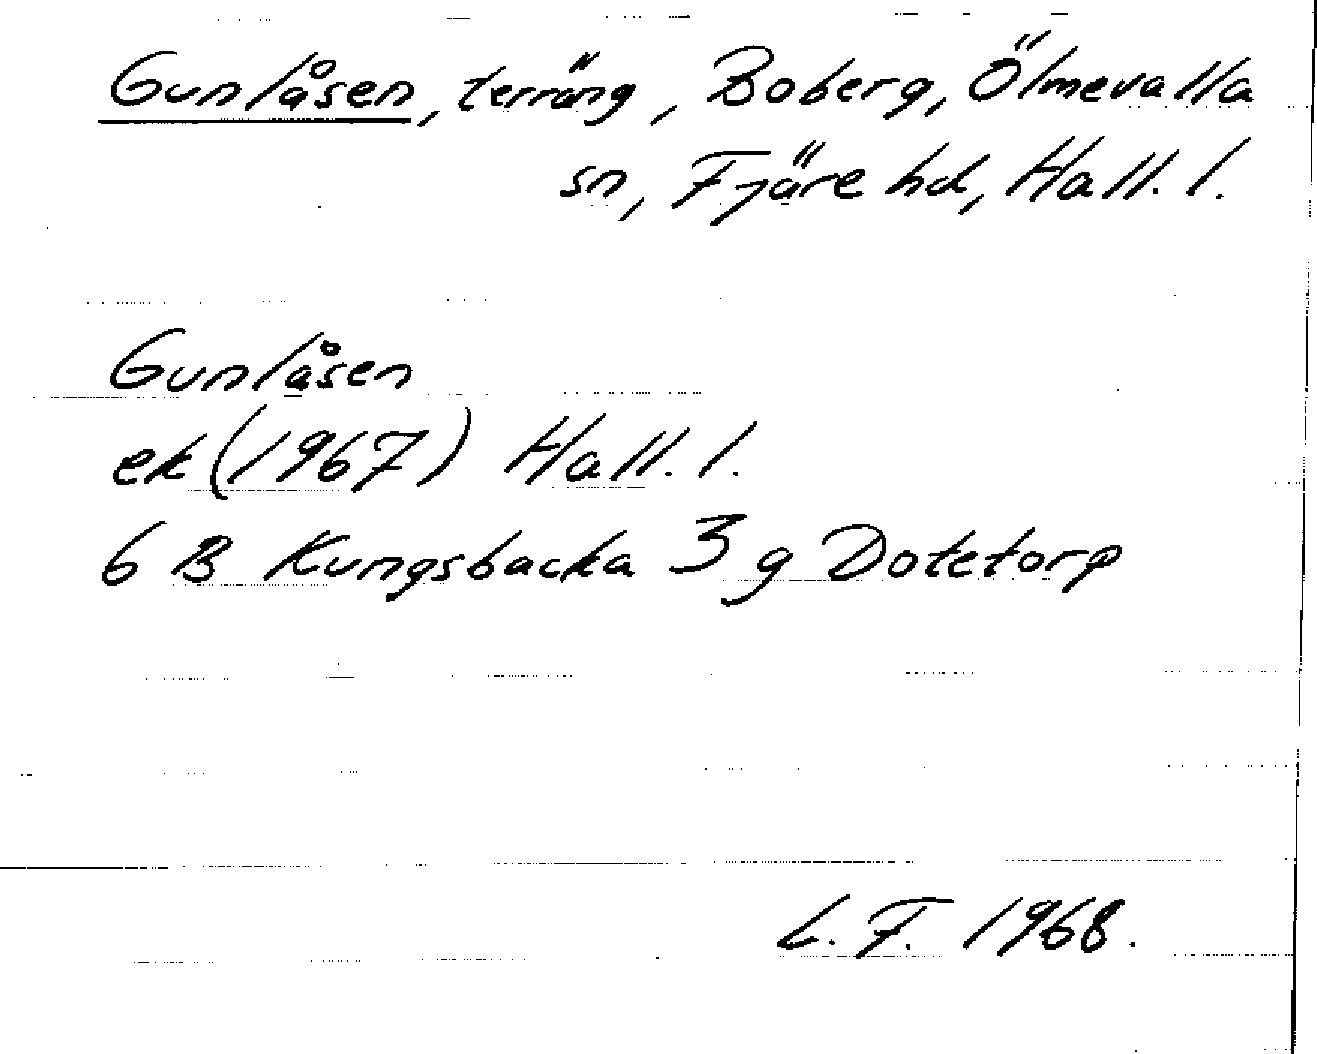 Gunlåsen, terräng, Boberg, Ölmevalla
sn, Fjäre hd, Hall. l.
Gunlåsen
ek (1967) Hall. l.
6 B Kungsbacka 3 g Dotetorp
L. F. 1968.